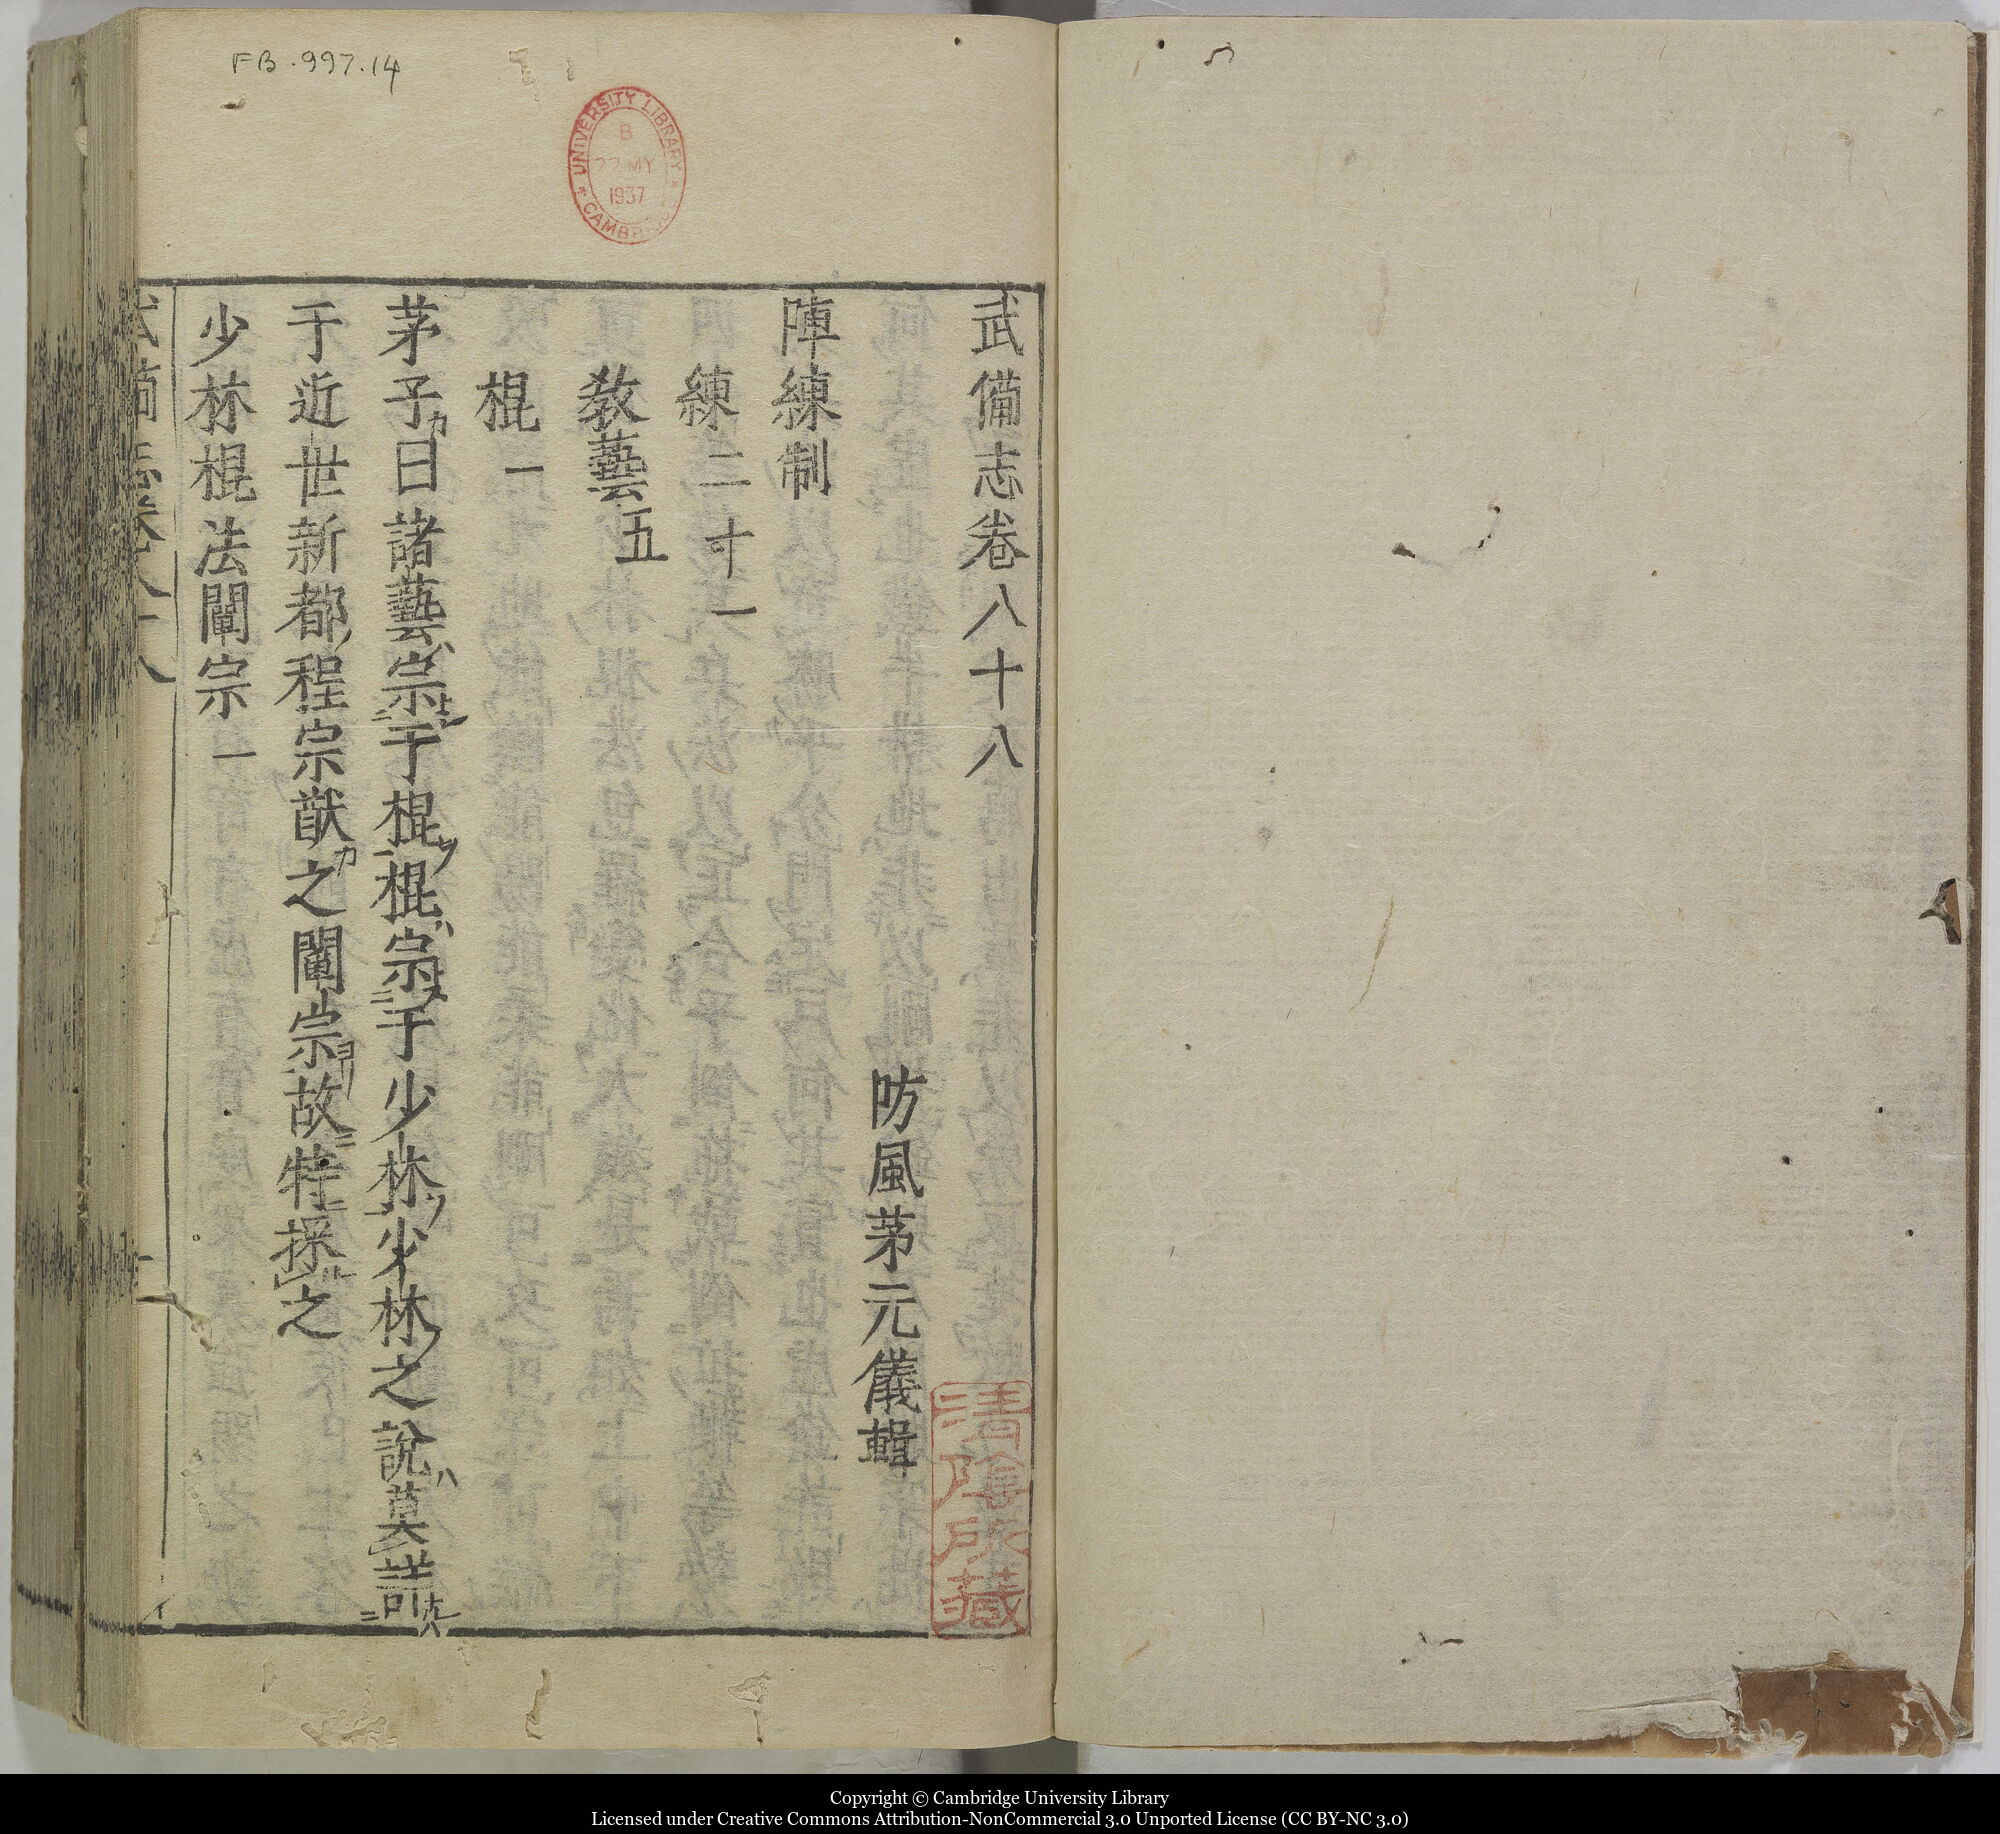 FB.997.14
UNIVERSITY LIBRARY
B
22 MY
1937
武備志卷八十八
防風茅元儀輯
陣練制
練二十一
教藝五
棍一
茅子曰諸藝宗于棍棍宗于少林少林之說莫詳
于近世新都程宗猷之闡宗故特採之
少林棍法闡宗一
清陰所藏
Copyright © Cambridge University Library
Licensed under Creative Commons Attribution-NonCommercial 3.0 Unported License (CC BY-NC 3.0)